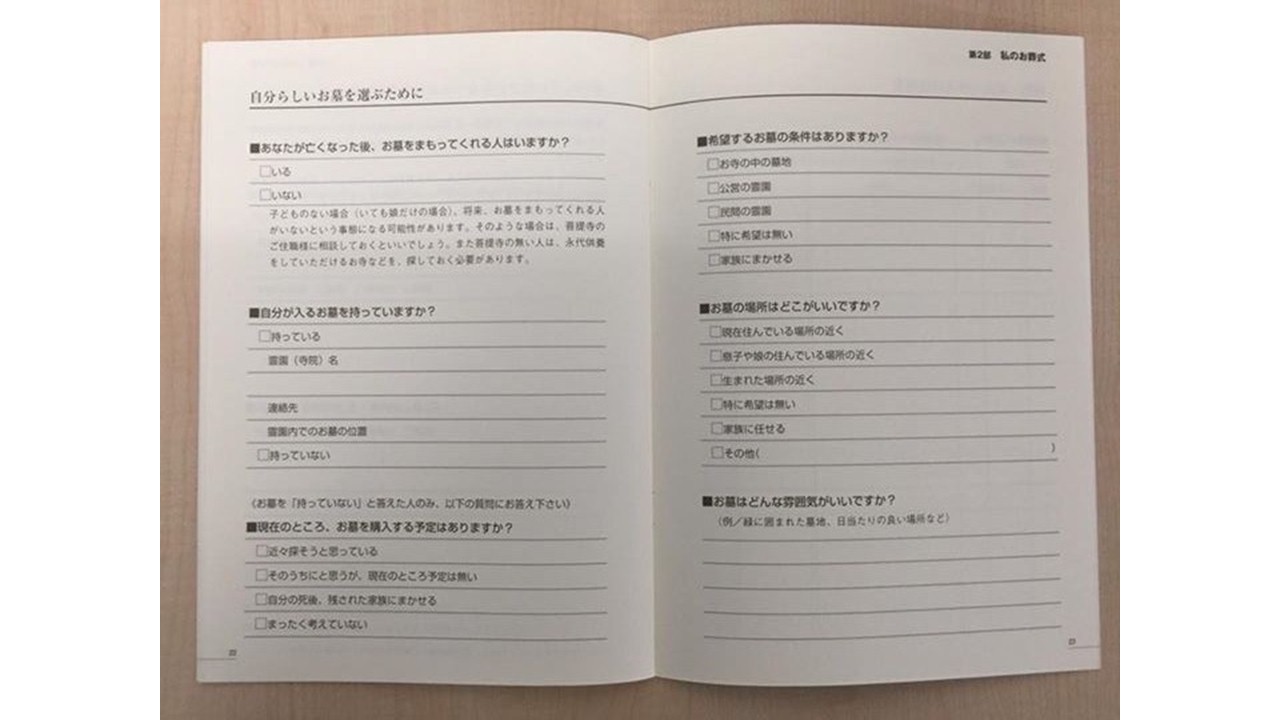 自分らしいお墓を選ぶために
■あなたが亡くなった後、お墓をまもってくれる人はいますか？
□いる
□いない
子どものない場合（いても娘だけの場合）、将来、お墓をまもってくれる人
がいないという事態になる可能性があります。そのような場合は、菩提寺の
ご住職様に相談しておくといいでしょう。また菩提寺の無い人は、永代供養
をしていただけるお寺などを、探しておく必要があります。
■自分が入るお墓を持っていますか？
□持っている
霊園（寺院）名
連絡先
霊園内でのお墓の位置
□持っていない
〈お墓を「持っていない」と答えた人のみ、以下の質問にお答え下さい〉
■現在のところ、お墓を購入する予定はありますか？
□近々探そうと思っている
□そのうちにと思うが、現在のところ予定は無い
□自分の死後、残された家族にまかせる
□まったく考えていない
第2部 私のお葬式
■希望するお墓の条件はありますか？
□お寺の中の墓地
□公営の霊園
□民間の霊園
□特に希望は無い
□家族にまかせる
■お墓の場所はどこがいいですか？
□現在住んでいる場所の近く
□息子や娘の住んでいる場所の近く
□生まれた場所の近く
□特に希望は無い
□家族に任せる
□その他( )
■お墓はどんな雰囲気がいいですか？
（例／緑に囲まれた墓地、日当たりの良い場所など）